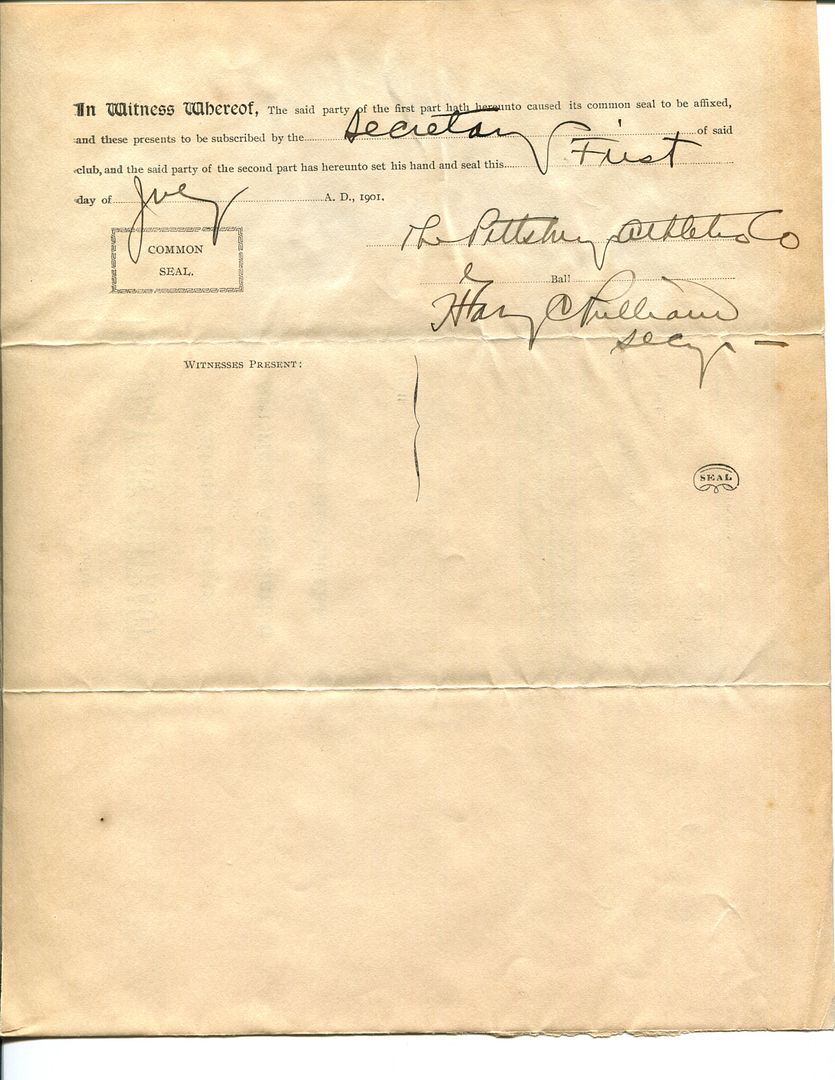 In Witness Whereof, The said party of the first part hath hereunto caused its common seal to be affixed,
and these presents to be subscribed by the Secretary of said
club, and the said party of the second part has hereunto set his hand and seal this First
day of July A. D., 1901.
The Pittsburg Athletic Co
COMMON
SEAL.
Ball
Harry C Pulliam
Secy —
WITNESSES PRESENT:
SEAL